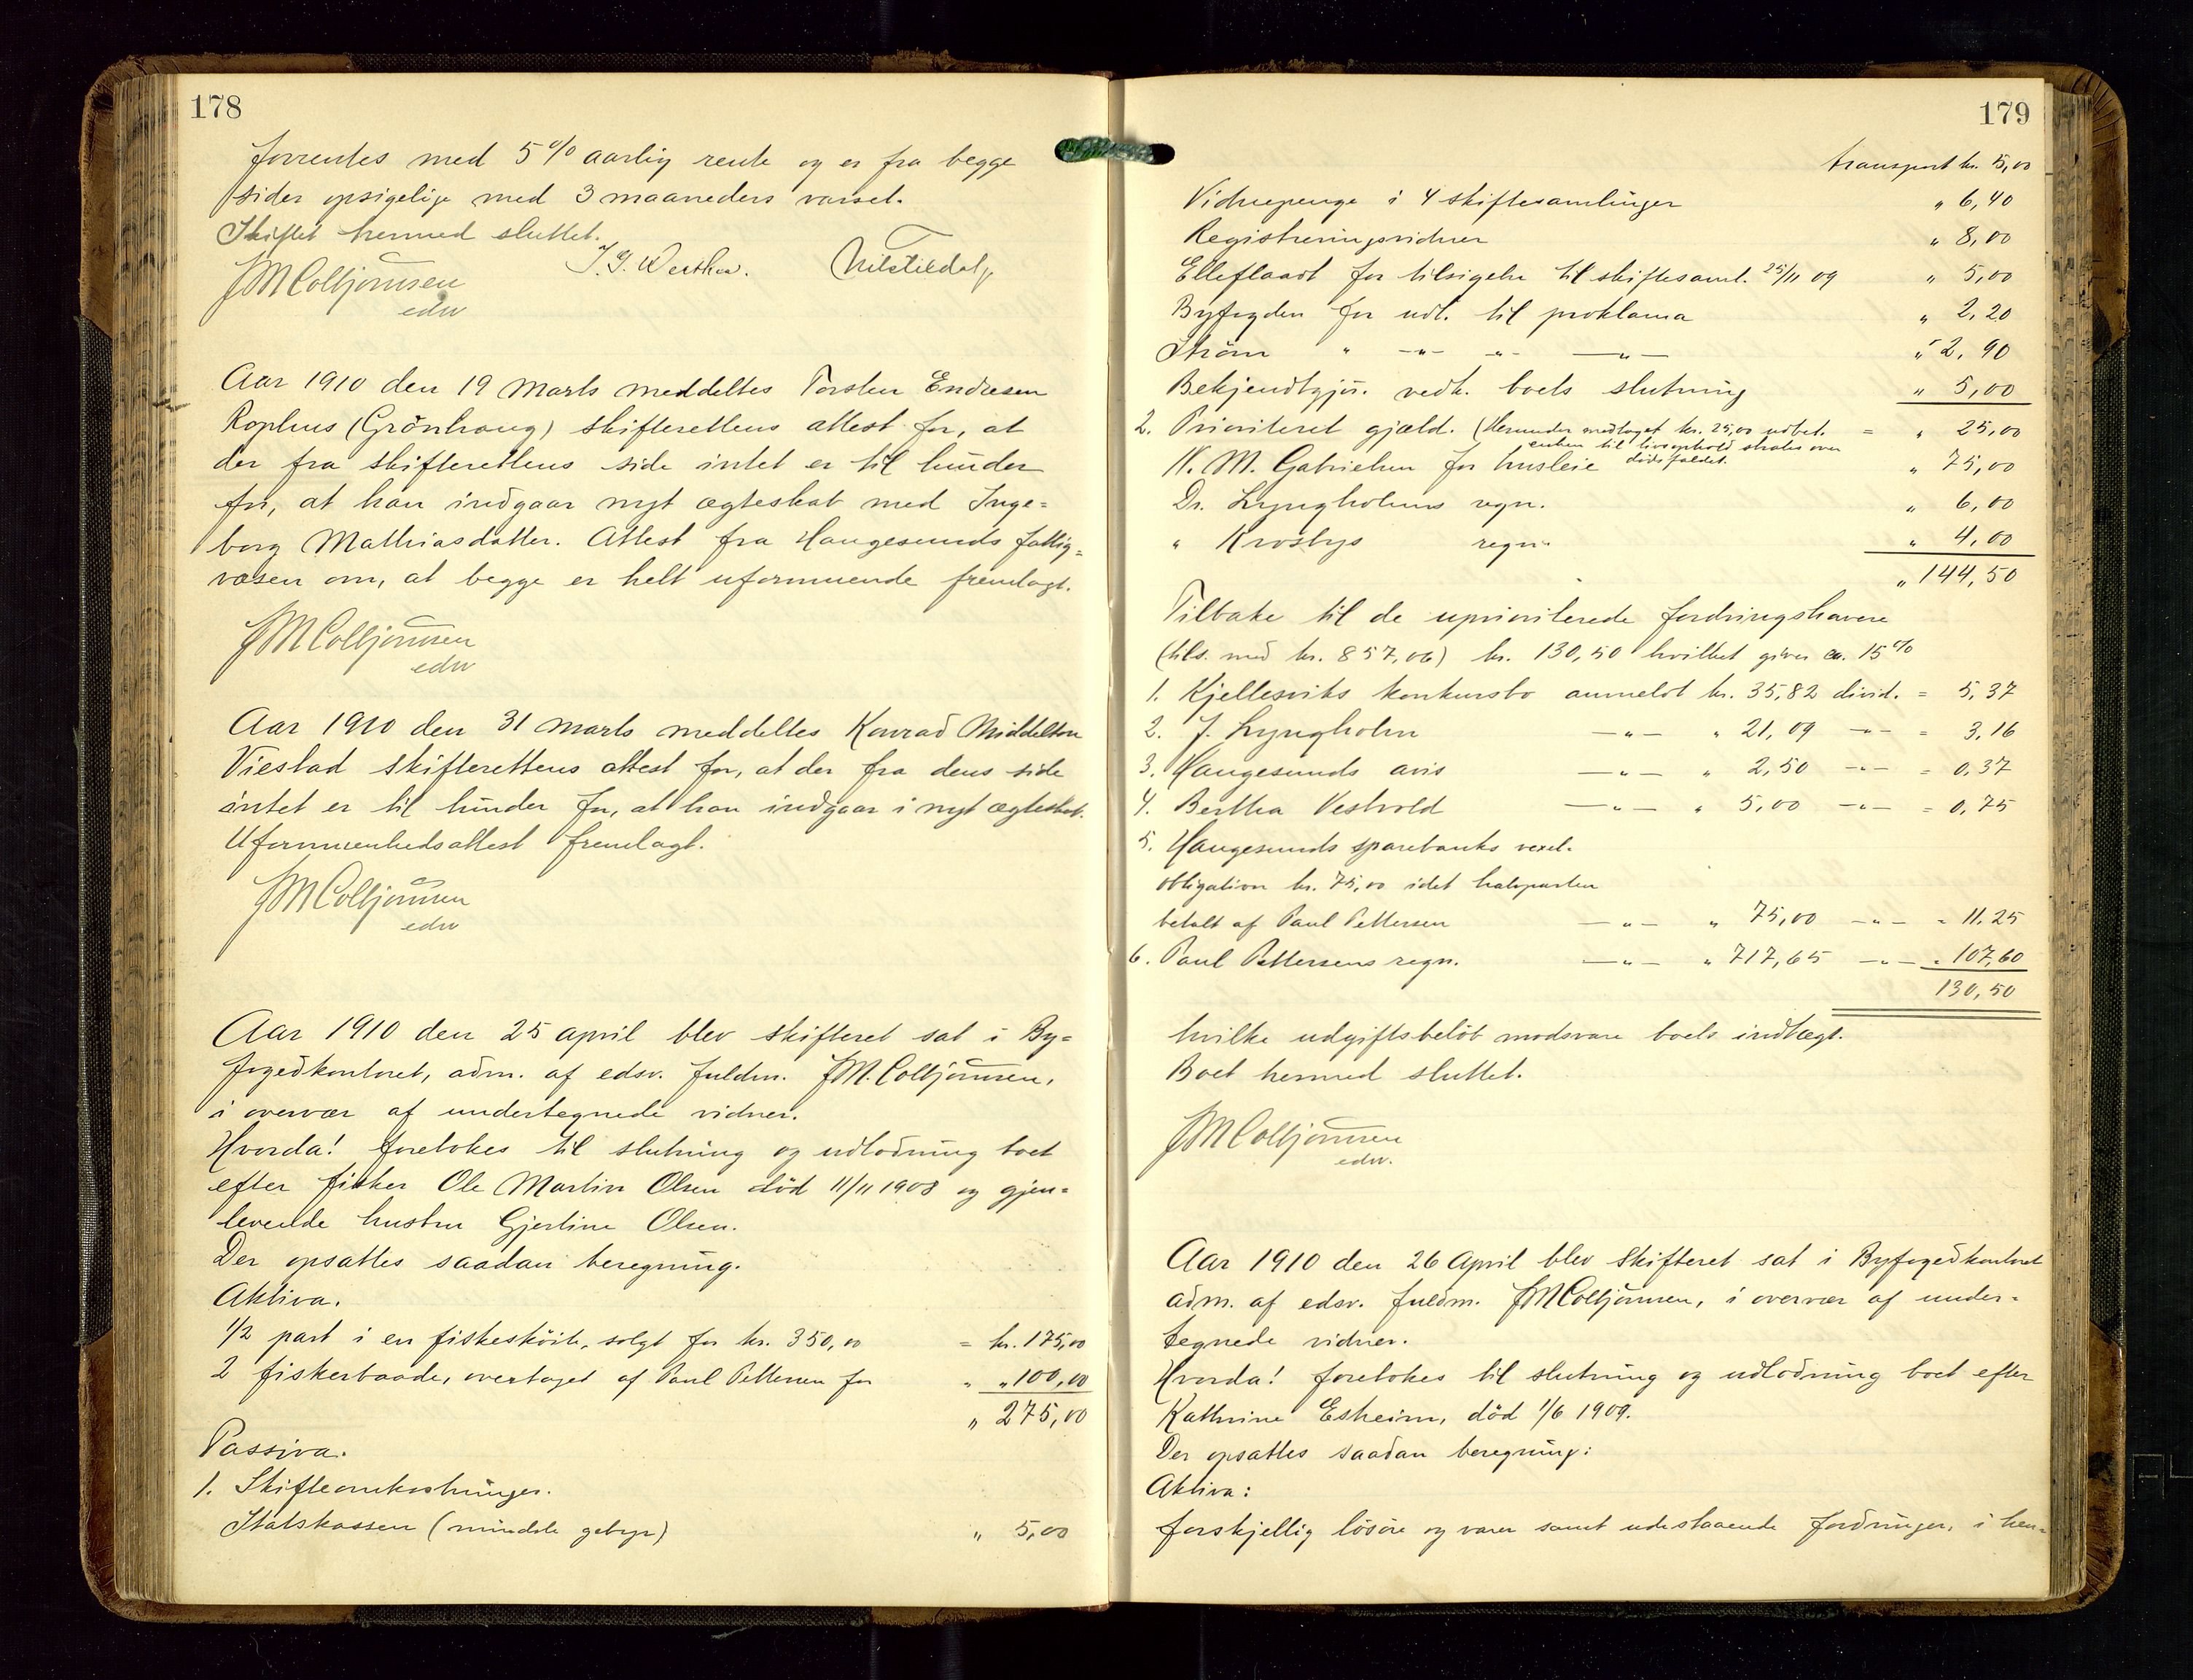 178
forrentes med 5% aarlig rente og er fra begge
sider opsigelige med 3 maaneders varsel.
Skiftet hermed sluttet.
JMColbjörnsen
edsv
Aar 1910 den 19 Marts meddeltes Torsten Endresen
Rophus (Grönhaug) skifterettens attest for, at
der fra skifterettens side intet er til hinder
for, at han indgaar nyt ægteskab med Inge=
borg Mathiasdatter. Attest fra Haugesunds fattig=
væsen om, at begge er helt uformuende fremlagt.
JMColbjörnsen
edsv
Aar 1910 den 31 marts meddeltes Konrad Middelton
Viestad skifterettens attest for, at der fra dens side
intet er til hinder for, at han indgaar i nyt ægteskab.
Uformuenhedsattest fremlagt.
JMColbjörnsen
edsv
Aar 1910 den 25 april blev skifteret sat i By=
fogedkontoret, adm. af edsv. fuldm. JM.Colbjörnsen,
i overvær af undertegnede vidner.
Hvorda! foretokes til slutning og udlodning boet
efter fisker Ole Martin Olsen död 11/11 1908 og gjen=
levende hustru Gjertine Olsen.
Der opsattes saadan beregning.
Aktiva.
1/2 part i en fiskesköite, solgt for kr. 350,00 = kr. 175,00
2 fiskerbaade, overtaget af Paul Pettersen for " " 100,00
" 275,00
Passiva.
1. Skifteomkostninger.
Statskassen (mindste gebyr) " 5,00
179
transport kr. 5,00
Vidnepenge i 4 skiftesamlinger " 6,40
Registreringsvidner " 8,00
Elleflaadt for tilsigelse til skiftesaml. 25/11 09 " 5,00
Byfogden for udl. til proklama " 2,20
Ström " -"- -"- -"- " 2,90
Bekjendtgjör. vedk. boets slutning " 5,00
2. Prioriteret gjæld. (Herunder medtaget kr. 25,00 udbet. = " 25,00
enken til livsophold straks over
dödsfaldet.
N. M. Gabrielsen for husleie " 75,00
Dr. Lyngholms regn. " 6,00
" Krosbys regn. " 4,00
" 144,50
Tilbake til de uprioriterede fordringshavere
(tils. med kr. 857,06) kr. 130,50 hvilket giver ca. 15%
1. Kjellesviks konkursbo anmeldt kr. 35,82 divid. = 5,37
2. J. Lyngholm -"- " 21,09 -"- = 3,16
3. Haugesunds avis -"- " 2,50 -"- = 0,37
4. Bertha Vestvold -"- " 5,00 -"- = 0,75
5. Haugesunds sparebanks vexel-
obligation kr. 75,00 idet halvparten
betalt af Paul Pettersen -"- " 75,00 -"- = 11,25
6. Paul Pettersens regn. -"- " 717,65 -"- = 107,60
130,50
hvilke udgiftsbelöb modsvare boets indtægt.
Boet hermed sluttet.
JMColbjörnsen
edsv.
Aar 1910 den 26 April blev skifteret sat i Byfogedkontoret
adm. af edsv. fuldm. JMColbjörnsen, i overvær af under-
tegnede vidner.
Hvorda! foretokes til slutning og udlodning boet efter
Kathrine Esheim, död 1/6 1909.
Der opsattes saadan beregning:
Aktiva:
forskjellig lösöre og varer samt udestaaende fordringer, i hen=